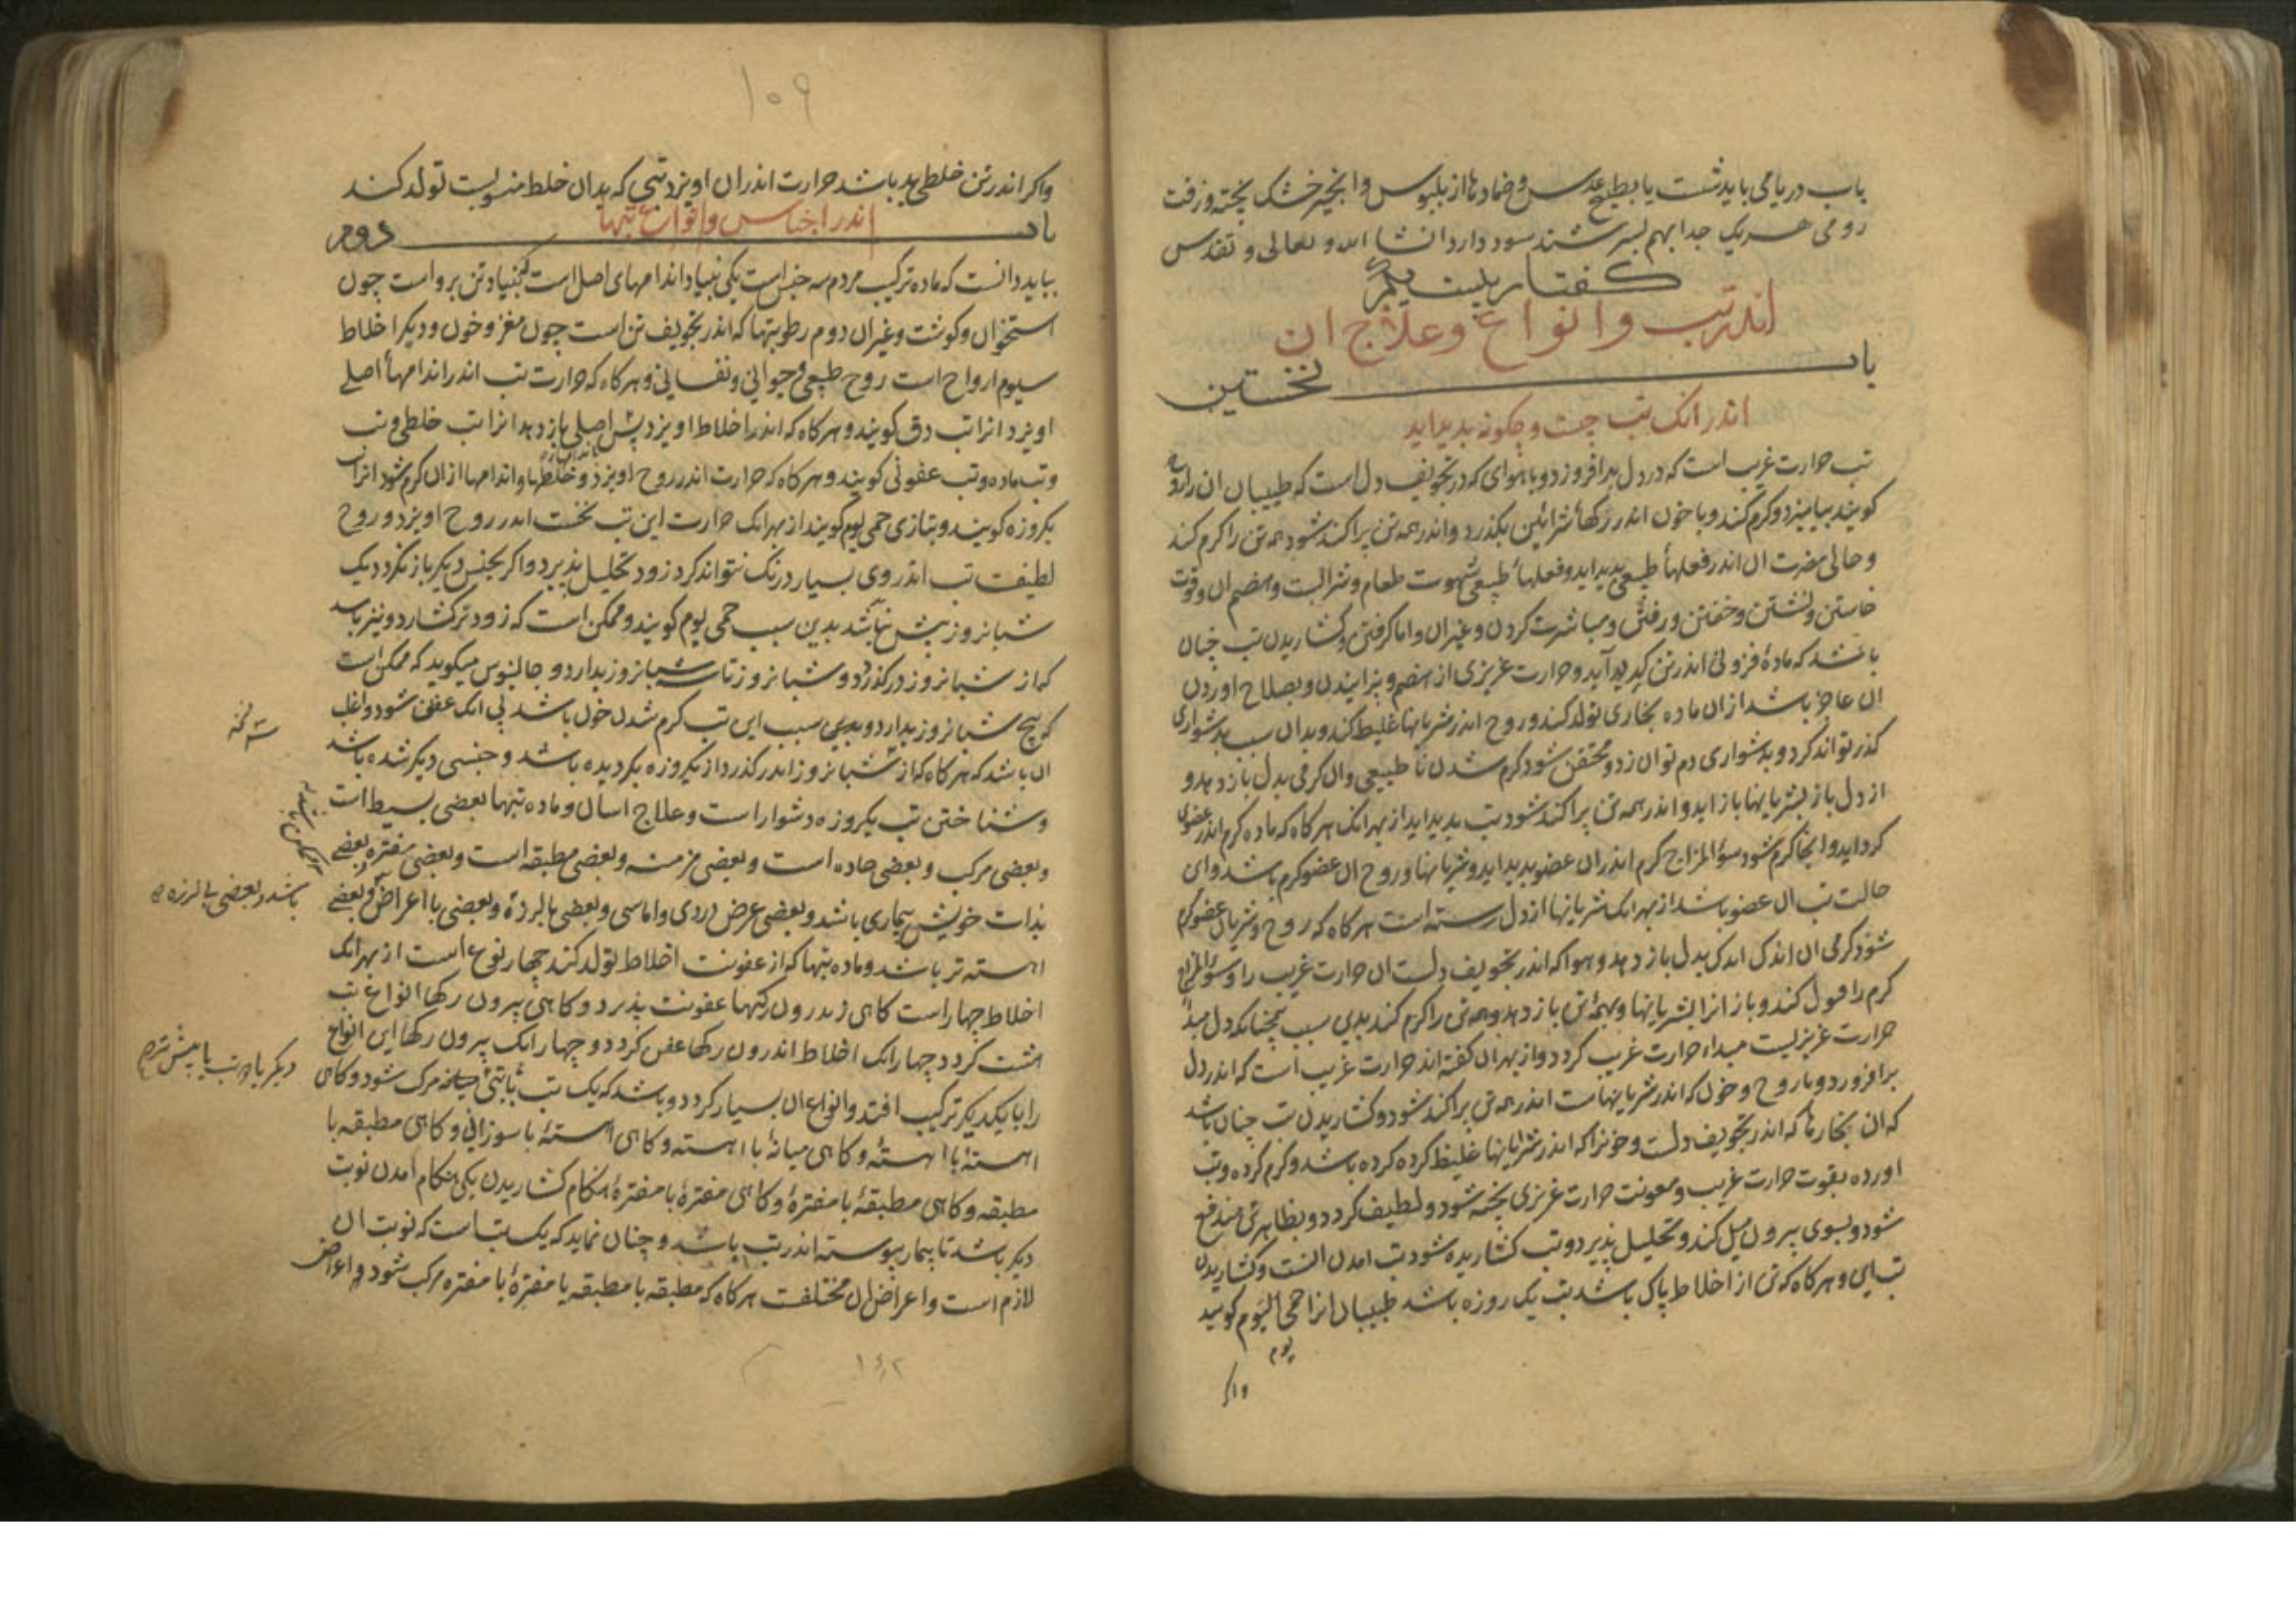 باب دریامی باید شست یا بطبیخ عدس و ضمادها از بلبوس و انجیر خشک پخته و زفت
رومی هر یک جدا بهم بسرشند سود دارد انشا الله و تعالی و تقدس
کفتار بیست یکم
اندر تب و انواع و علاج ان
باب نخستین
اندر انک تب چیست و چکونه بدید اید
تب حرارت غریب است که در دل برافروزد و با هوای که در تجویف دل است که طبیبان ان را روح
کویند بیامیزد و کرم کند و با خون اندر رکهاء شرائین بکذرد و اندر همه تن پراکنده شود همه تن را کرم کند
و حالی مضرت ان اندر فعلهاء طبیعی پدید اید و فعلهاء طبیعی شهوت طعام و شرابست و هضم ان و قوت
خاستن و نشستن و خفتن و رفتن و مباشرت کردن و غیر ان و اما کرفتن و کشاریدن تب چنان
باشد که مادهٔ فزونی اندر تن کرد آید و حرارت غریزی از هضم و بزایندن و بصلاح اوردن
ان عاجز باشد از ان ماده بخاری تولد کند و روح اندر شریانها غلیظ کند و بدان سبب بدشواری
کذر تواند کرد و بدشواری دم توان زد و محتقن شود کرم شدن نا طبیعی و ان کرمی بدل باز دهد و
از دل باز بشریانها باز اید و اندر همه تن پراکنده شود تب بدید اید از بهر انک هرکاه که ماده کرم اندر عضوی
کرد اید و انجا کرم شود سوء المزاج کرم اندر ان عضو بدید اید و شریانها و روح ان عضو کرم باشد و این
حالت تب ان عضو باشد از بهر انک شریانها از دل رسته است هرکاه که روح و شریان عضو کرم
شود کرمی ان اندک اندک بدل باز دهد و هوا که اندر تجویف دلست ان حرارت غریب را و سوء المزاج
کرم را قبول کند و باز انرا بشریانها و بهمه تن باز دهد و همه تن را کرم کند بدین سبب همچنانکه دل مبداء
حرارت غریزیست مبداء حرارت غریب کردد و از بهر ان کفته اند حرارت غریب است که اندر دل
برافروزد و با روح و خون که اندر شریانهاست اندر همه تن پراکنده شود و کشاریدن تب چنان باشد
که ان بخارها که اندر تجویف دلست و خونرا که اندر شریانها غلیظ کرده کرده باشد و کرم کرده و تب
اورده بقوت حرارت غریب و معونت حرارت غریزی پخته شود و لطیف کردد و بظاهر تن مندفع
شود و بسوی بیرون میل کند و تحلیل پذیرد و تب کشاریده شود تب امدن انست و کشاریدن
تب این و هرکاه که تن از اخلاط پاک باشد تب یک روزه باشد طبیبان انرا حمی الیوم کویند
یوم
واکر
۱۰۹
واکر اندر تن خلطی بد باشد حرارت اندر ان اویزد تبی که بدان خلط منسوبست تولد کند
باب اندر اجناس و انواع تبها دوم
بباید دانست که ماده ترکیب مردم سه جنس است یکی بنیاد اندامهای اصل است که بنیاد تن بر و است چون
استخوان و کوشت و غیر ان دوم رطوبتها که اندر تجویف تن است چون مغز و خون و دیکر اخلاط
سیوم ارواح است روح طبیعی و حیوانی و نفسانی و هرکاه که حرارت تب اندر اندامهاء اصلی
اویزد انرا تب دق کویند و هرکاه که اندر اخلاط اویزد پس اصلی باز دهد انرا تب خلطی و تب
و تب ماده و تب عفونی کویند و هرکاه که حرارت اندر روح اویزد و خلطها و اندامها از ان کرم شود انرا تب
یکروزه کویند و بتازی حمی یوم کویند از بهر انک حرارت این تب نخست اندر روح اویزد و روح
لطیفست تب اندر وی بسیار درنک نتواند کرد زود تحلیل پذیرد و اکر بجنس دیکر باز نکردد یک
شبانروز بیش نباشد بدین سبب حمی یوم کویند و ممکن است که زودتر کشارد و نیز باشد
که از شبانروز درکذرد و دو شبانروز تا سه شبانروز بدارد و جالینوس میکوید که ممکن است
که پنج شبانروز بدارد و بدین سبب این تب کرم شدن خون باشد بی انک عفن شود و اغلب
ان باشد که هرکاه که از سه شبانروز اندر کذرد از یکروزه بکردیده باشد و جنسی دیکر شده باشد
و شناختن تب یکروزه دشوار است و علاج اسان و ماده تبها بعضی بسیط است
و بعضی مرکب و بعضی حاده است و بعضی مزمنه و بعضی مطبقه است و بعضی مفتره و بعضی
بذات خویش بیماری باشد و بعضی عرض دردی و اماسی و بعضی با لرزه و بعضی با اعراض و بعضی
اهسته تر باشد و ماده تبها که از عفونت اخلاط تولد کند چهار نوع است از بهر انک
اخلاط چهار است کاهی اندرون رکها عفونت پذیرد و کاهی بیرون رکها انواع تب
هشت کردد چهار انک اخلاط اندرون رکها عفن کردد و چهار انک بیرون رکها این انواع
را با یکدیکر ترکیب افتد و انواع ان بسیار کردد و باشد که یک تب با تبی میانه مرکب شود و کاهی
اهسته با اهسته و کاهی میانه با اهسته و کاهی اهسته با سوزانی و کاهی مطبقه با
مطبقه و کاهی مطبقه با مفتره و کاهی مفتره با مفتره هنکام کشاریدن یکی هنکام امدن نوبت
دیکر باشد تا بیمار پیوسته اندر تب باشد و چنان نماید که یک تب است که نوبت ان
لازم است و اعراض ان مختلفت هرکاه که مطبقه با مطبقه یا مفتره با مفتره مرکب شود و اعراض
باشد و بعضی بی لرزه
دیکر باد و تب یا بیش
۱۴۲